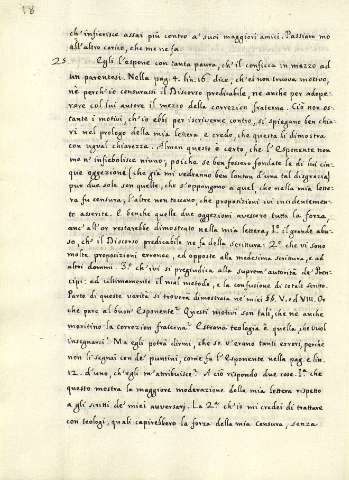 18
ch'infierisce assai più contro a' suoi maggiori amici. Passiam mo
all'altro carico, che me ne fa.
25 Egli l'espone con tanta paura, ch'il conficca in mazzo ad
un parentesi. Nella pag. 4. lin. 16. dice, ch'ei non truova motivo,
nè perch'io censurassi il Discorso predicabile, ne anche per adope-
rare col lui autore il mezzo della correzion fraterna. Ciò non os-
tante i motivi, ch'io ebbi per iscriverne contro, si spiegano ben chia-
ri nel prologo della mia lettera e credo, che questa li dimostra
con ugual chiarezza. Almen questo è certo, che l'Esponente non
mo n'infiebolisce niuno; poiche se ben fossero fondate le di lui cin-
que oggezioni (che già mi vedranno ben lontan d'una tal disgrazia)
pur due sole son quelle, che s'oppongono a quel, che nella mia lette-
ra fu censura; l'altre non toccano, che proposizioni ivi incidentemen-
to asserite. E benche quelle due oggezioni avessero tutta la forza,
anc'all'or restarebbe dimostrato nella mia lettera, 1.º il grande abu-
so, ch'il Discorso predicabile ne fa della scrittura: 2.º che vi sono
molte proposizioni erronee, ed opposte alla medesima scrittura, e ad
altri dommi. 3.º ch'ivi si pregiudica alla suprem'autorità de' Pren-
cipi: ed ultimamente il mal metodo, e la confusione di cotale scritto.
Parte di queste verità si troverà dimostrata ne' miei §§. V. ed VIII. Or
che pare al buon Esponente? Questi motivi son tali, che nè anche
meritino la correzion fraterna? Estrana teologia è quella, che vuol
insegnarsi! Ma egli potrà dirmi, che se v'erano tanti errori, perchè
non li segnai con de' puntini, come fa l'Esponente nella pag. 6 lin.
12. d'uno, ch'egli m'attribuisce? A ciò rispondo due cose. 1.º che
questo mostra la maggiore moderazione della mia lettera rispetto
a gli scritti de' miei avversarj. La 2.ª ch'io mi credei di trattare
con teologi, quali capirebbero la forza della mia censura, senza